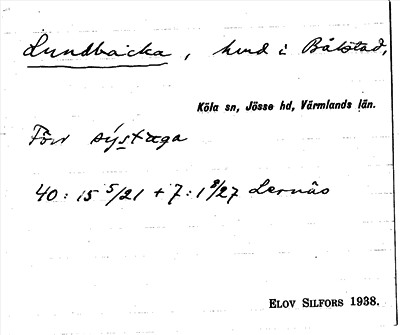 Lundbacka, hmd i Båkstad,
Köla sn, Jösse hd, Värmlands län.
Förr sýstuga
40:15 5/21 + 7:1 9/27 Lernäs
ELOV SILFORS 1938.